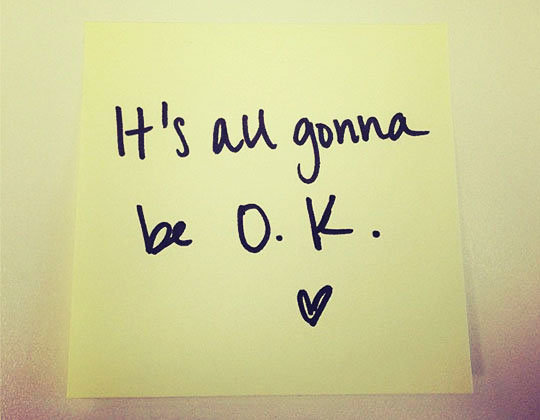 It's all gonna
be O.K.